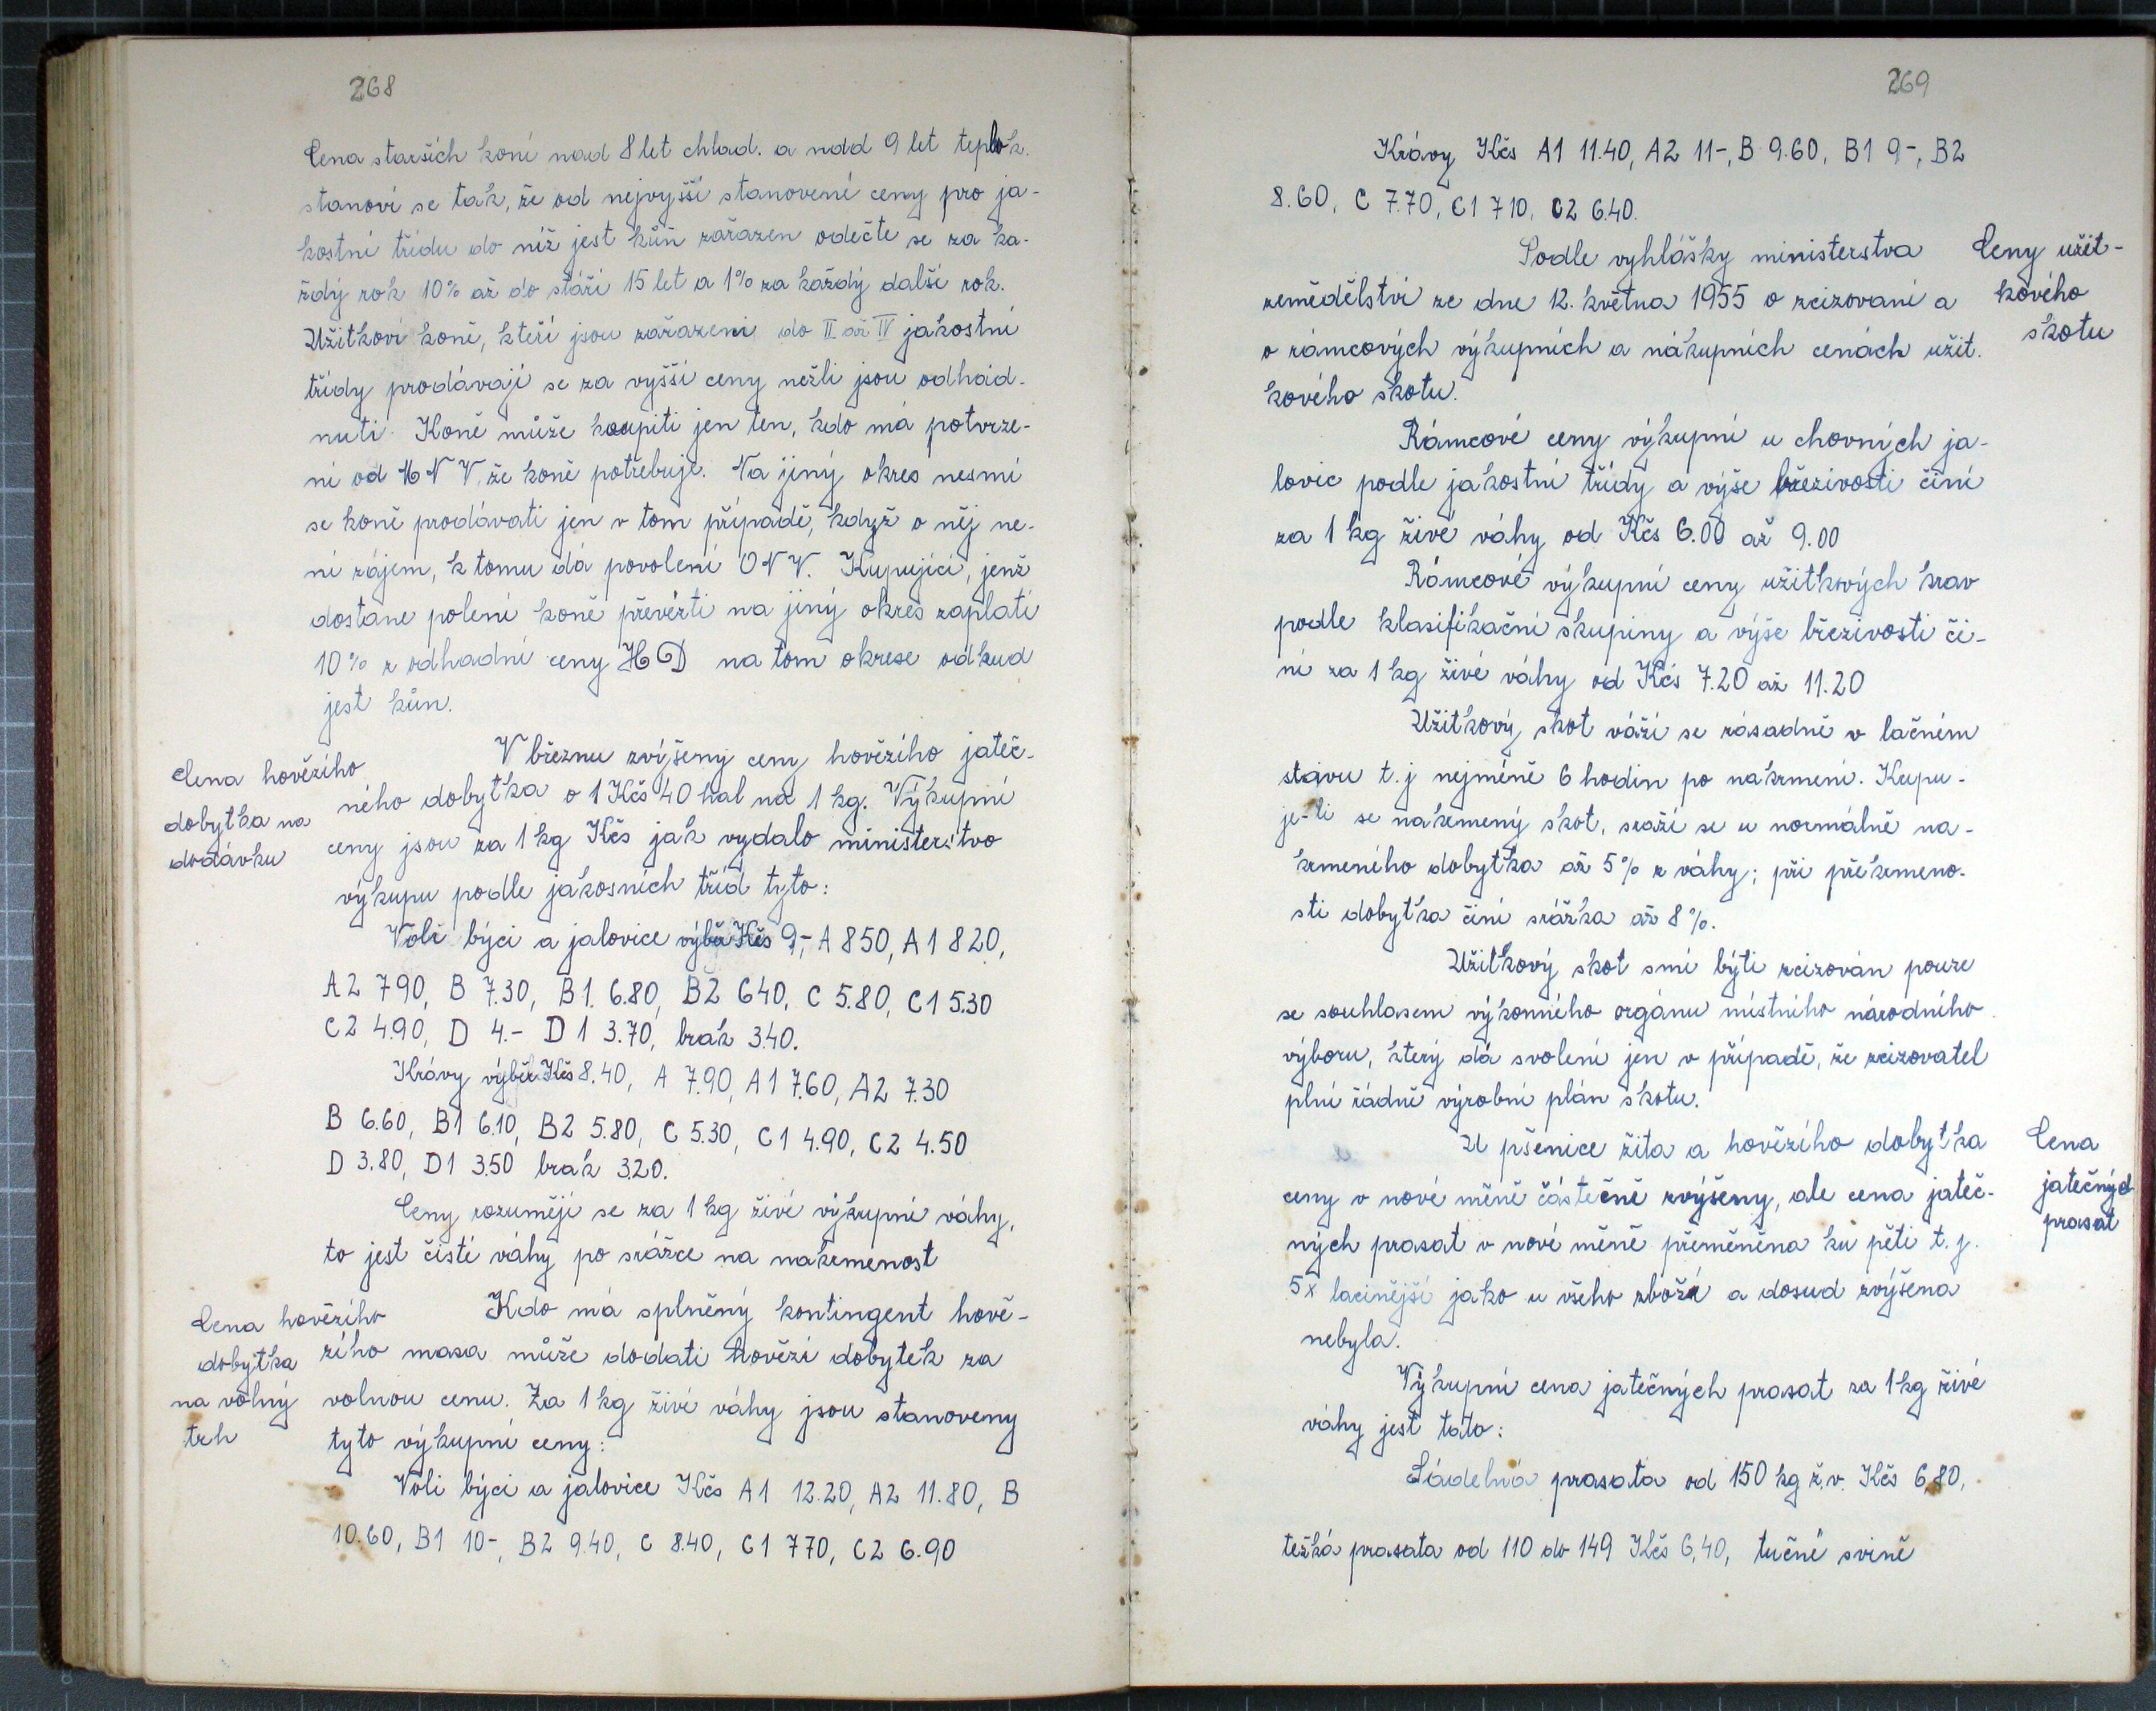 268
Cena starších koní nad 8 let chlad. a nad 9 let teplok.
stanoví se tak, že od nejvyšší stanovené ceny pro ja-
kostní třídu do níž jest kůň zařazen odečte se za ka-
ždý rok 10% až do stáří 15 let a 1% za každý další rok.
Užitkoví koně, kteří jsou zařazeni do II až IV jakostní
třídy prodávají se za vyšší ceny nežli jsou odhad-
nuti. Koně může koupiti jen ten, kdo má potvrze-
ní od M N V, že koně potřebuje. Na jiný okres nesmí
se koně prodávati jen v tom případě, když o něj ne-
ní zájem, k tomu dá povolení O N V. Kupující, jenž
dostane polení koně převézti na jiný okres zaplatí
10% z odhadní ceny H D na tom okrese odkud
jest kůn.
Cena hovězího
dobytka na
dodávku
V březnu zvýšeny ceny hovězího jateč-
ného dobytka o 1 Kčs 40 hal na 1 kg. Výkupní
ceny jsou za 1 kg Kčs jak vydalo ministerstvo
výkupu podle jakosních tříd tyto:
Voli býci a jalovice výběr Kčs 9,- A 850, A1 820,
A2 790, B 7.30, B1. 6.80, B2 640, C 5.80, C1 5.30
C2 4.90, D 4.- D1 3.70, brak 3.40.
Krávy výběr Kčs 8.40, A 7.90, A1 7.60, A2 7.30
B 6.60, B1 6.10, B2 5.80, C 5.30, C1 4.90, C2 4.50
D 3.80, D1 3.50 brak 3.20.
Ceny rozumějí se za 1 kg živé výkupní váhy,
to jest čisté váhy po srážce na nakrmenost
Cena hovězího
dobytka
na volný
trh
Kdo má splněný kontingent hově-
zího masa může dodati hovězí dobytek za
volnou cenu. Za 1 kg živé váhy jsou stanoveny
tyto výkupní ceny:
Voli býci a jalovice Kčs A1 12.20, A2 11.80, B
10.60, B1 10-, B2 9.40, C 8.40, C1 7.70, C2 6.90
269
Krávy Kčs A1 11.40, A2 11-, B 9.60, B1 9-, B2
8.60, C 7.70, C1 710, C2 6.40.
Podle vyhlášky ministerstva
zemědělství ze dne 12. května 1955 o zcizovaní a
o rámcových výkupních a nákupních cenách užit.
kového skotu.
Ceny užit-
kového
skotu
Rámcové ceny výkupní u chovných ja-
lovic podle jakostní třídy a výše březivosti činí
za 1 kg živé váhy od Kčs 6.00 až 9.00
Rámcové výkupní ceny užitkových krav
podle klasifikační skupiny a výše březivosti či-
ní za 1 kg živé váhy od Kčs 7.20 až 11.20
Užitkový skot váží se zásadně v lačném
stavu t.j nejméně 6 hodin po nakrmení. Kupu-
je-li se nakrmený skot, sráží se u normálně na-
krmeného dobytka až 5% z váhy; při překrmeno-
sti dobytka činí srážka až 8%.
Užitkový skot smí býti zcizován pouze
se souhlasem výkonného orgánu místního národního
výboru, který dá svolení jen v případě, že zcizovatel
plní řádně výrobní plán skotu.
U pšenice žita a hovězího dobytka
ceny v nové měně částečně zvýšeny, ale cena jateč-
ných prasat v nové měně přeměněna ku pěti t.j.
5x lacinější jako u všeho zboží a dosud zvýšena
nebyla.
Cena
jatečných
prasat
Výkupní cena jatečných prasat za 1 kg živé
váhy jest tato:
Sádelná prasata od 150 kg ž.v. Kčs 6,80,
težká prasata od 110 do 149 Kčs 6,40, tučné svině